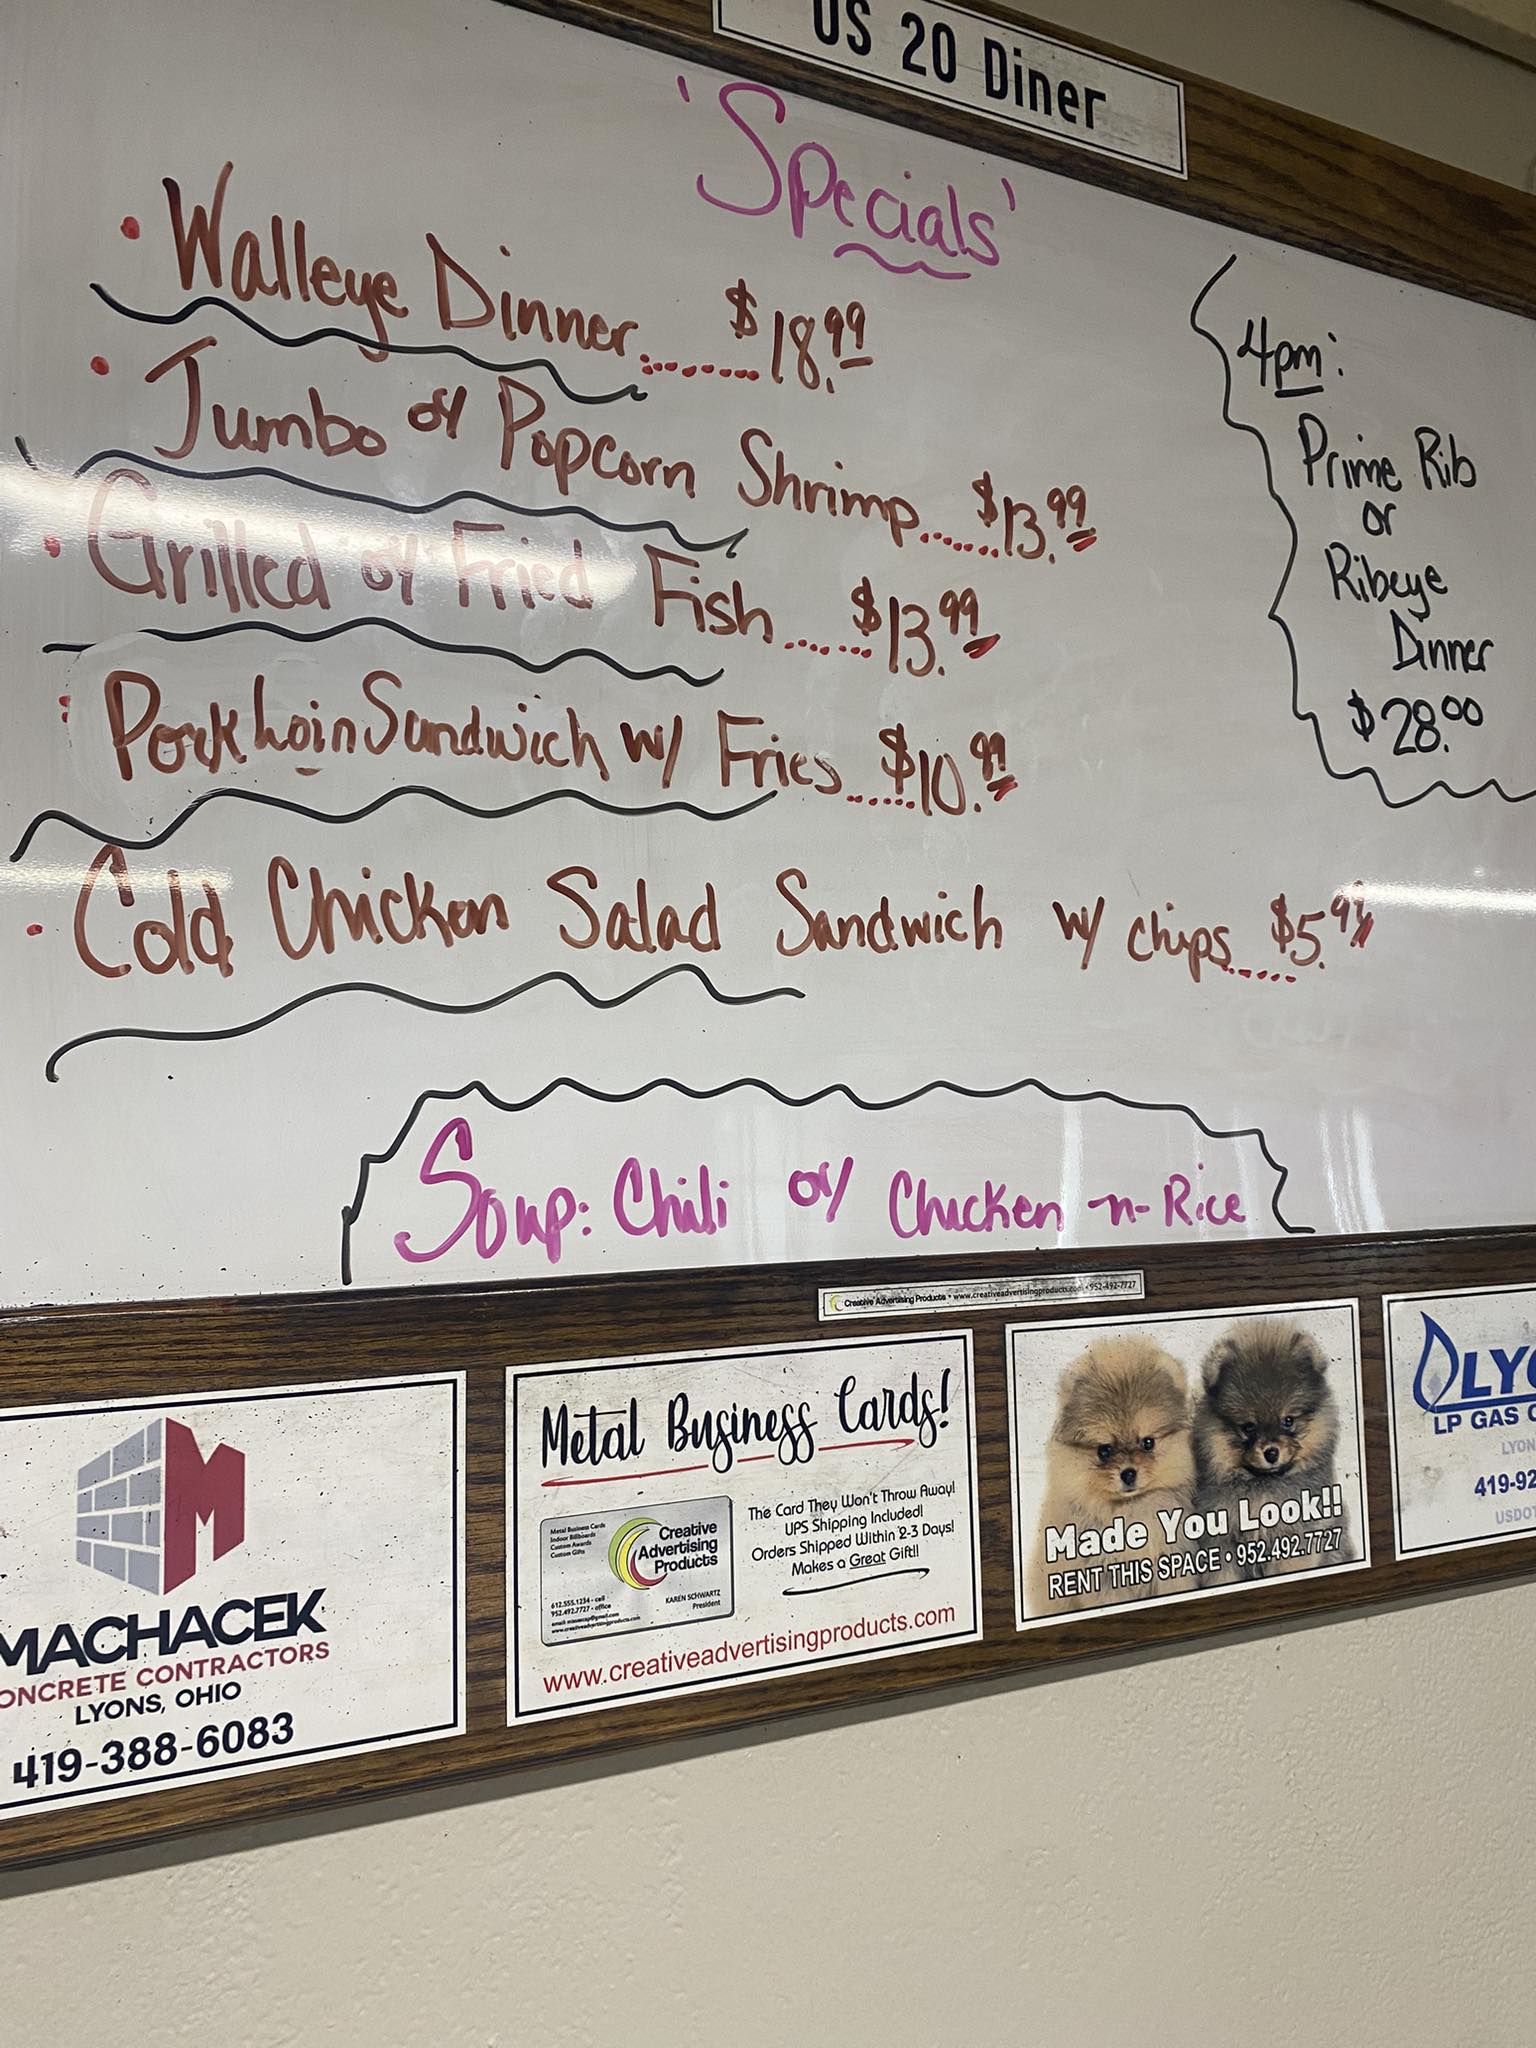 US 20 Diner
'Specials'
• Walleye Dinner....... $18.99
• Jumbo or Popcorn Shrimp...... $13.99
• Grilled or Fried Fish...... $13.99
• Pork Loin Sandwich w/ Fries...... $10.99
• Cold Chicken Salad Sandwich w/ chips..... $5.99
4pm:
Prime Rib
or
Ribeye
Dinner
$28.00
Soup: Chili or Chicken-n-Rice
Creative Advertising Products • www.creativeadvertisingproducts.com • 952-492-7727
MACHACEK
ONCRETE CONTRACTORS
LYONS, OHIO
419-388-6083
Metal Business Cards!
Metal Business Cards
Indoor Billboards
Custom Awards
Custom Gifts
Creative
Advertising
Products
612.555.1234 - cell
952.492.7727 - office
www.creativeadvertisingproducts.com
KAREN SCHWARTZ
President
The Card They Won't Throw Away!
UPS Shipping Included!
Orders Shipped Within 2-3 Days!
Makes a Great Gift!!
www.creativeadvertisingproducts.com
Made You Look!!
RENT THIS SPACE • 952.492.7727
LYO
LP GAS
LYON
419-92
USDO